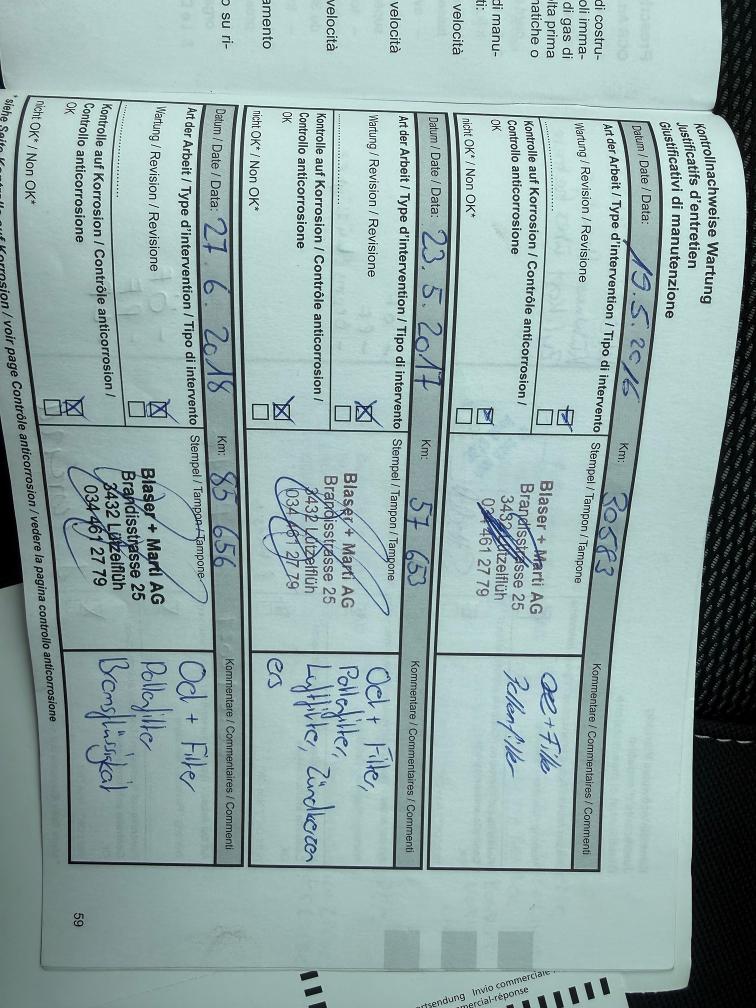 di costru-
oli imma-
di gas di
lta prima
matiche o
di manu-
ti:
velocità
velocità
velocità
amento
o su ri-
Kontrollnachweise Wartung
Justificatifs d'entretien
Giustificativi di manutenzione
Datum / Date / Data: 19.5.2016 Km: 30583
Art der Arbeit / Type d'intervention / Tipo di intervento
Stempel / Tampon / Tampone
Kommentare / Commentaires / Commenti
Wartung / Revision / Revisione
Kontrolle auf Korrosion / Contrôle anticorrosion /
Controllo anticorrosione
OK
nicht OK* / Non OK*
Blaser + Marti AG
Brandisstrasse 25
3432 Lützelflüh
034 461 27 79
Oel + Filter
Pollenfilter
Datum / Date / Data: 23.5.2017 Km: 57 653
Art der Arbeit / Type d'intervention / Tipo di intervento
Stempel / Tampon / Tampone
Kommentare / Commentaires / Commenti
Wartung / Revision / Revisione
Kontrolle auf Korrosion / Contrôle anticorrosion /
Controllo anticorrosione
OK
nicht OK* / Non OK*
Blaser + Marti AG
Brandisstrasse 25
3432 Lützelflüh
034 461 27 79
Oel + Filter,
Pollenfilter,
Luftfilter, Zündkerzen
ers
Datum / Date / Data: 27.6.2018 Km: 85 656
Art der Arbeit / Type d'intervention / Tipo di intervento
Stempel / Tampon / Tampone
Kommentare / Commentaires / Commenti
Wartung / Revision / Revisione
Kontrolle auf Korrosion / Contrôle anticorrosion /
Controllo anticorrosione
OK
nicht OK* / Non OK*
Blaser + Marti AG
Brandisstrasse 25
3432 Lützelflüh
034 461 27 79
Oel + Filter
Pollenfilter
Bremsflüssigkeit
* siehe Seite Kontrolle auf Korrosion / voir page Contrôle anticorrosion / vedere la pagina controllo anticorrosione
59
rtsendung Invio commerciale
mercial-réponse